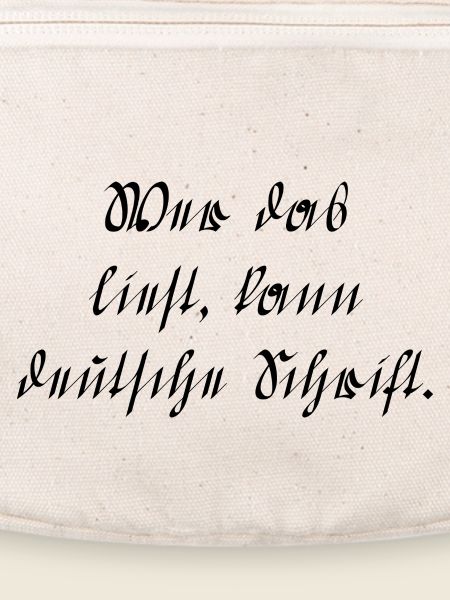 Wer das
liest, kann
deutsche Schrift.